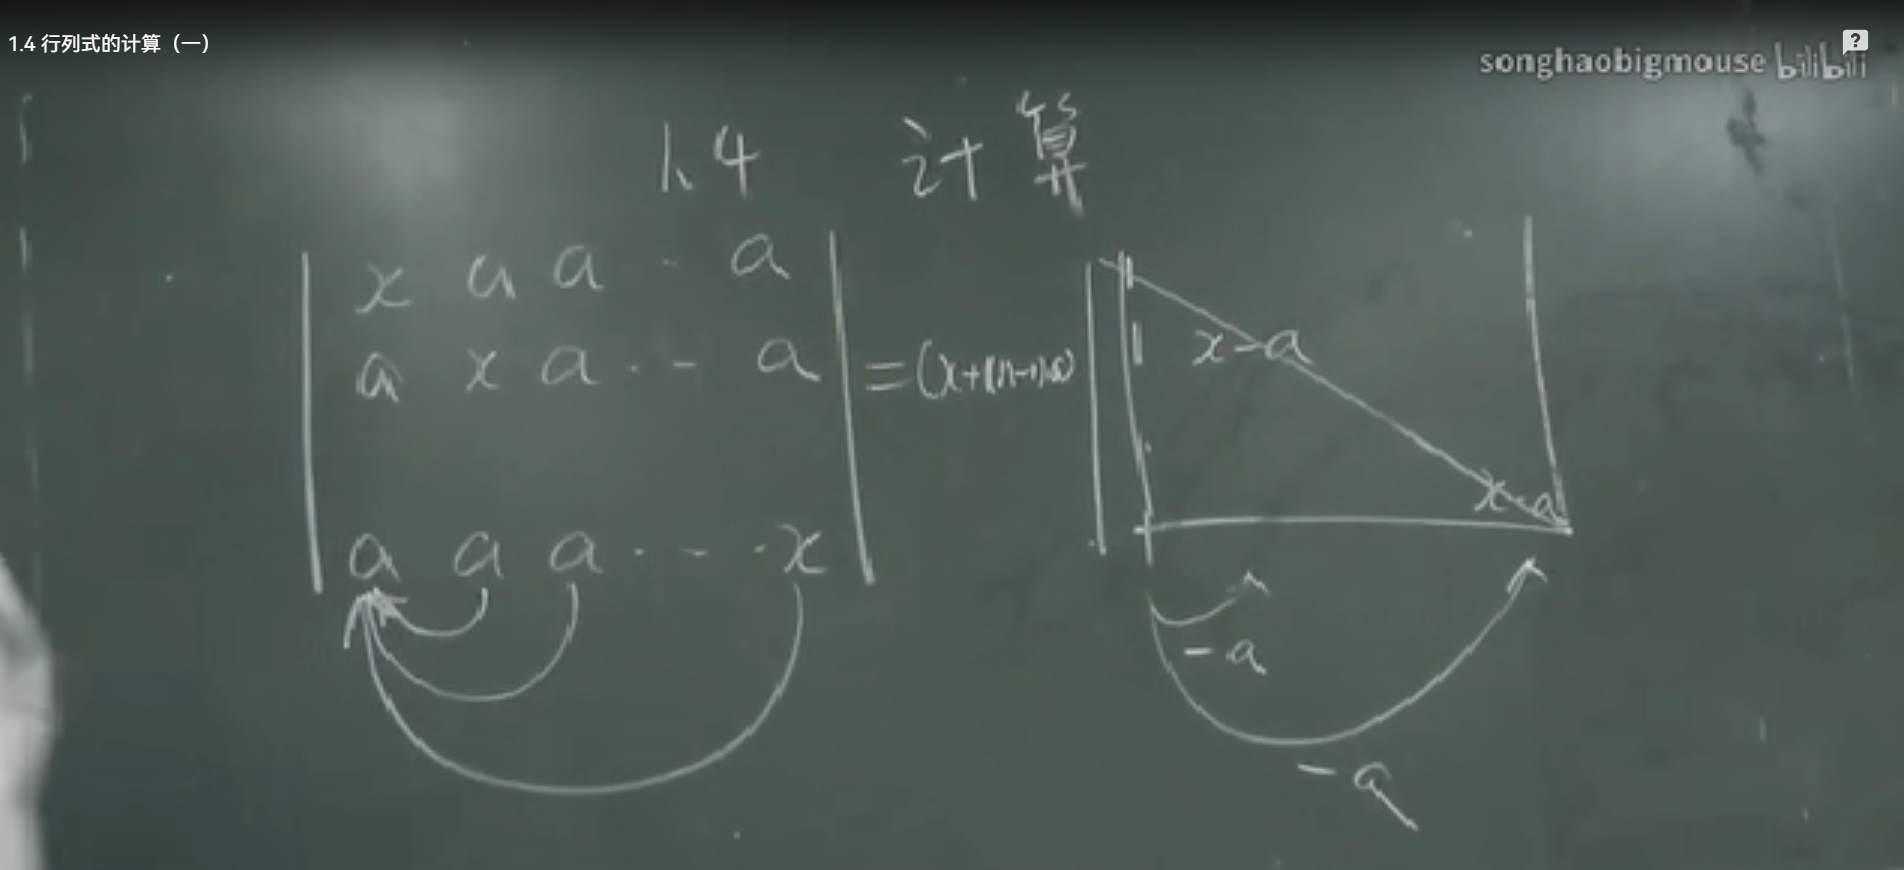 1.4 行列式的计算（一）
songhaobigmouse bilibili
1.4 计算
x a a · a
a x a · - a = (x+(n-1)a) 1
1 x-a
x-a
a a a · - · x
-a
-a